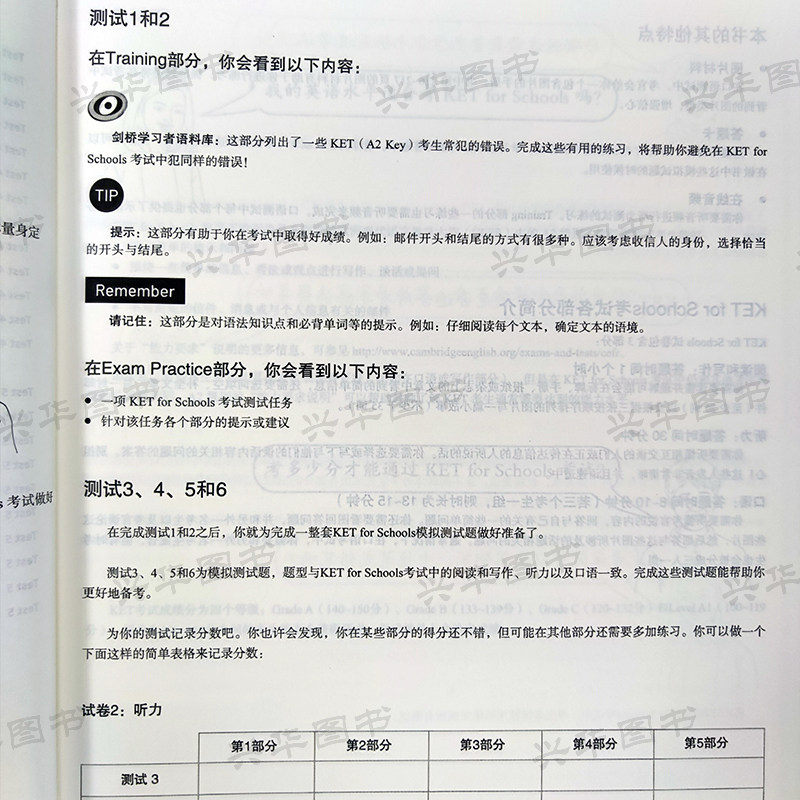 测试1和2
在Training部分，你会看到以下内容：
剑桥学习者语料库：这部分列出了一些 KET（A2 Key）考生常犯的错误。完成这些有用的练习，将帮助你避免在 KET for
Schools 考试中犯同样的错误！
TIP
提示：这部分有助于你在考试中取得好成绩。例如：邮件开头和结尾的方式有很多种。应该考虑收信人的身份，选择恰当
的开头与结尾。
Remember
请记住：这部分是对语法知识点和必背单词等的提示。例如：仔细阅读每个文本，确定文本的语境。
在Exam Practice部分，你会看到以下内容：
● 一项 KET for Schools 考试测试任务
● 针对该任务各个部分的提示或建议
测试3、4、5和6
在完成测试1和2之后，你就为完成一整套KET for Schools模拟测试题做好准备了。
测试3、4、5和6为模拟测试题，题型与KET for Schools考试中的阅读和写作、听力以及口语一致。完成这些测试题能帮助你
更好地备考。
为你的测试记录分数吧。你也许会发现，你在某些部分的得分还不错，但可能在其他部分还需要多加练习。你可以做一个
下面这样的简单表格来记录分数：
试卷2：听力
第1部分 第2部分 第3部分 第4部分 第5部分
测试 3
量身定
s 考试做好
兴华图书